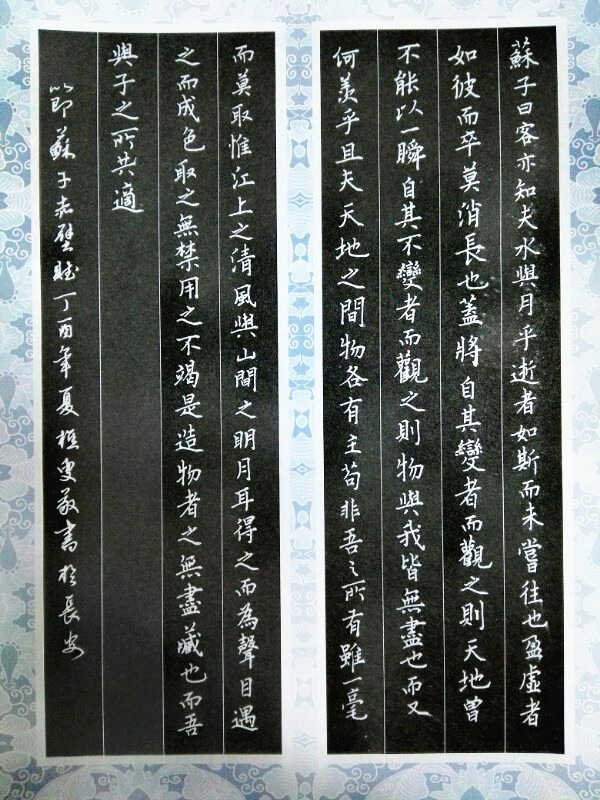 蘇子曰客亦知夫水與月乎逝者如斯而未嘗往也盈虛者
如彼而卒莫消長也蓋將自其變者而觀之則天地曾
不能以一瞬自其不變者而觀之則物與我皆無盡也而又
何羨乎且夫天地之間物各有主苟非吾之所有雖一毫
而莫取惟江上之清風與山間之明月耳得之而為聲目遇
之而成色取之無禁用之不竭是造物者之無盡藏也而吾
與子之所共適
節蘇子赤壁賦丁酉年夏樵叟敬書於長安